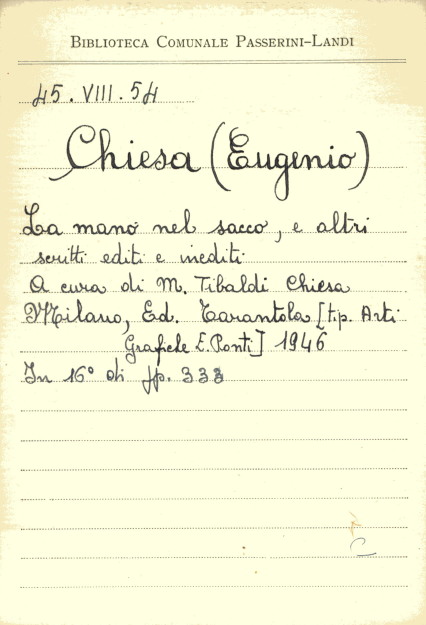 BIBLIOTECA COMUNALE PASSERINI-LANDI
45.VIII.54
Chiesa (Eugenio)
La mano nel sacco, e altri
scritti editi e inediti
A cura di M. Tibaldi Chiesa
Milano, Ed. Tarantola [tip. Arti
Grafiche E. Ponti] 1946
In 16° di pp. 333